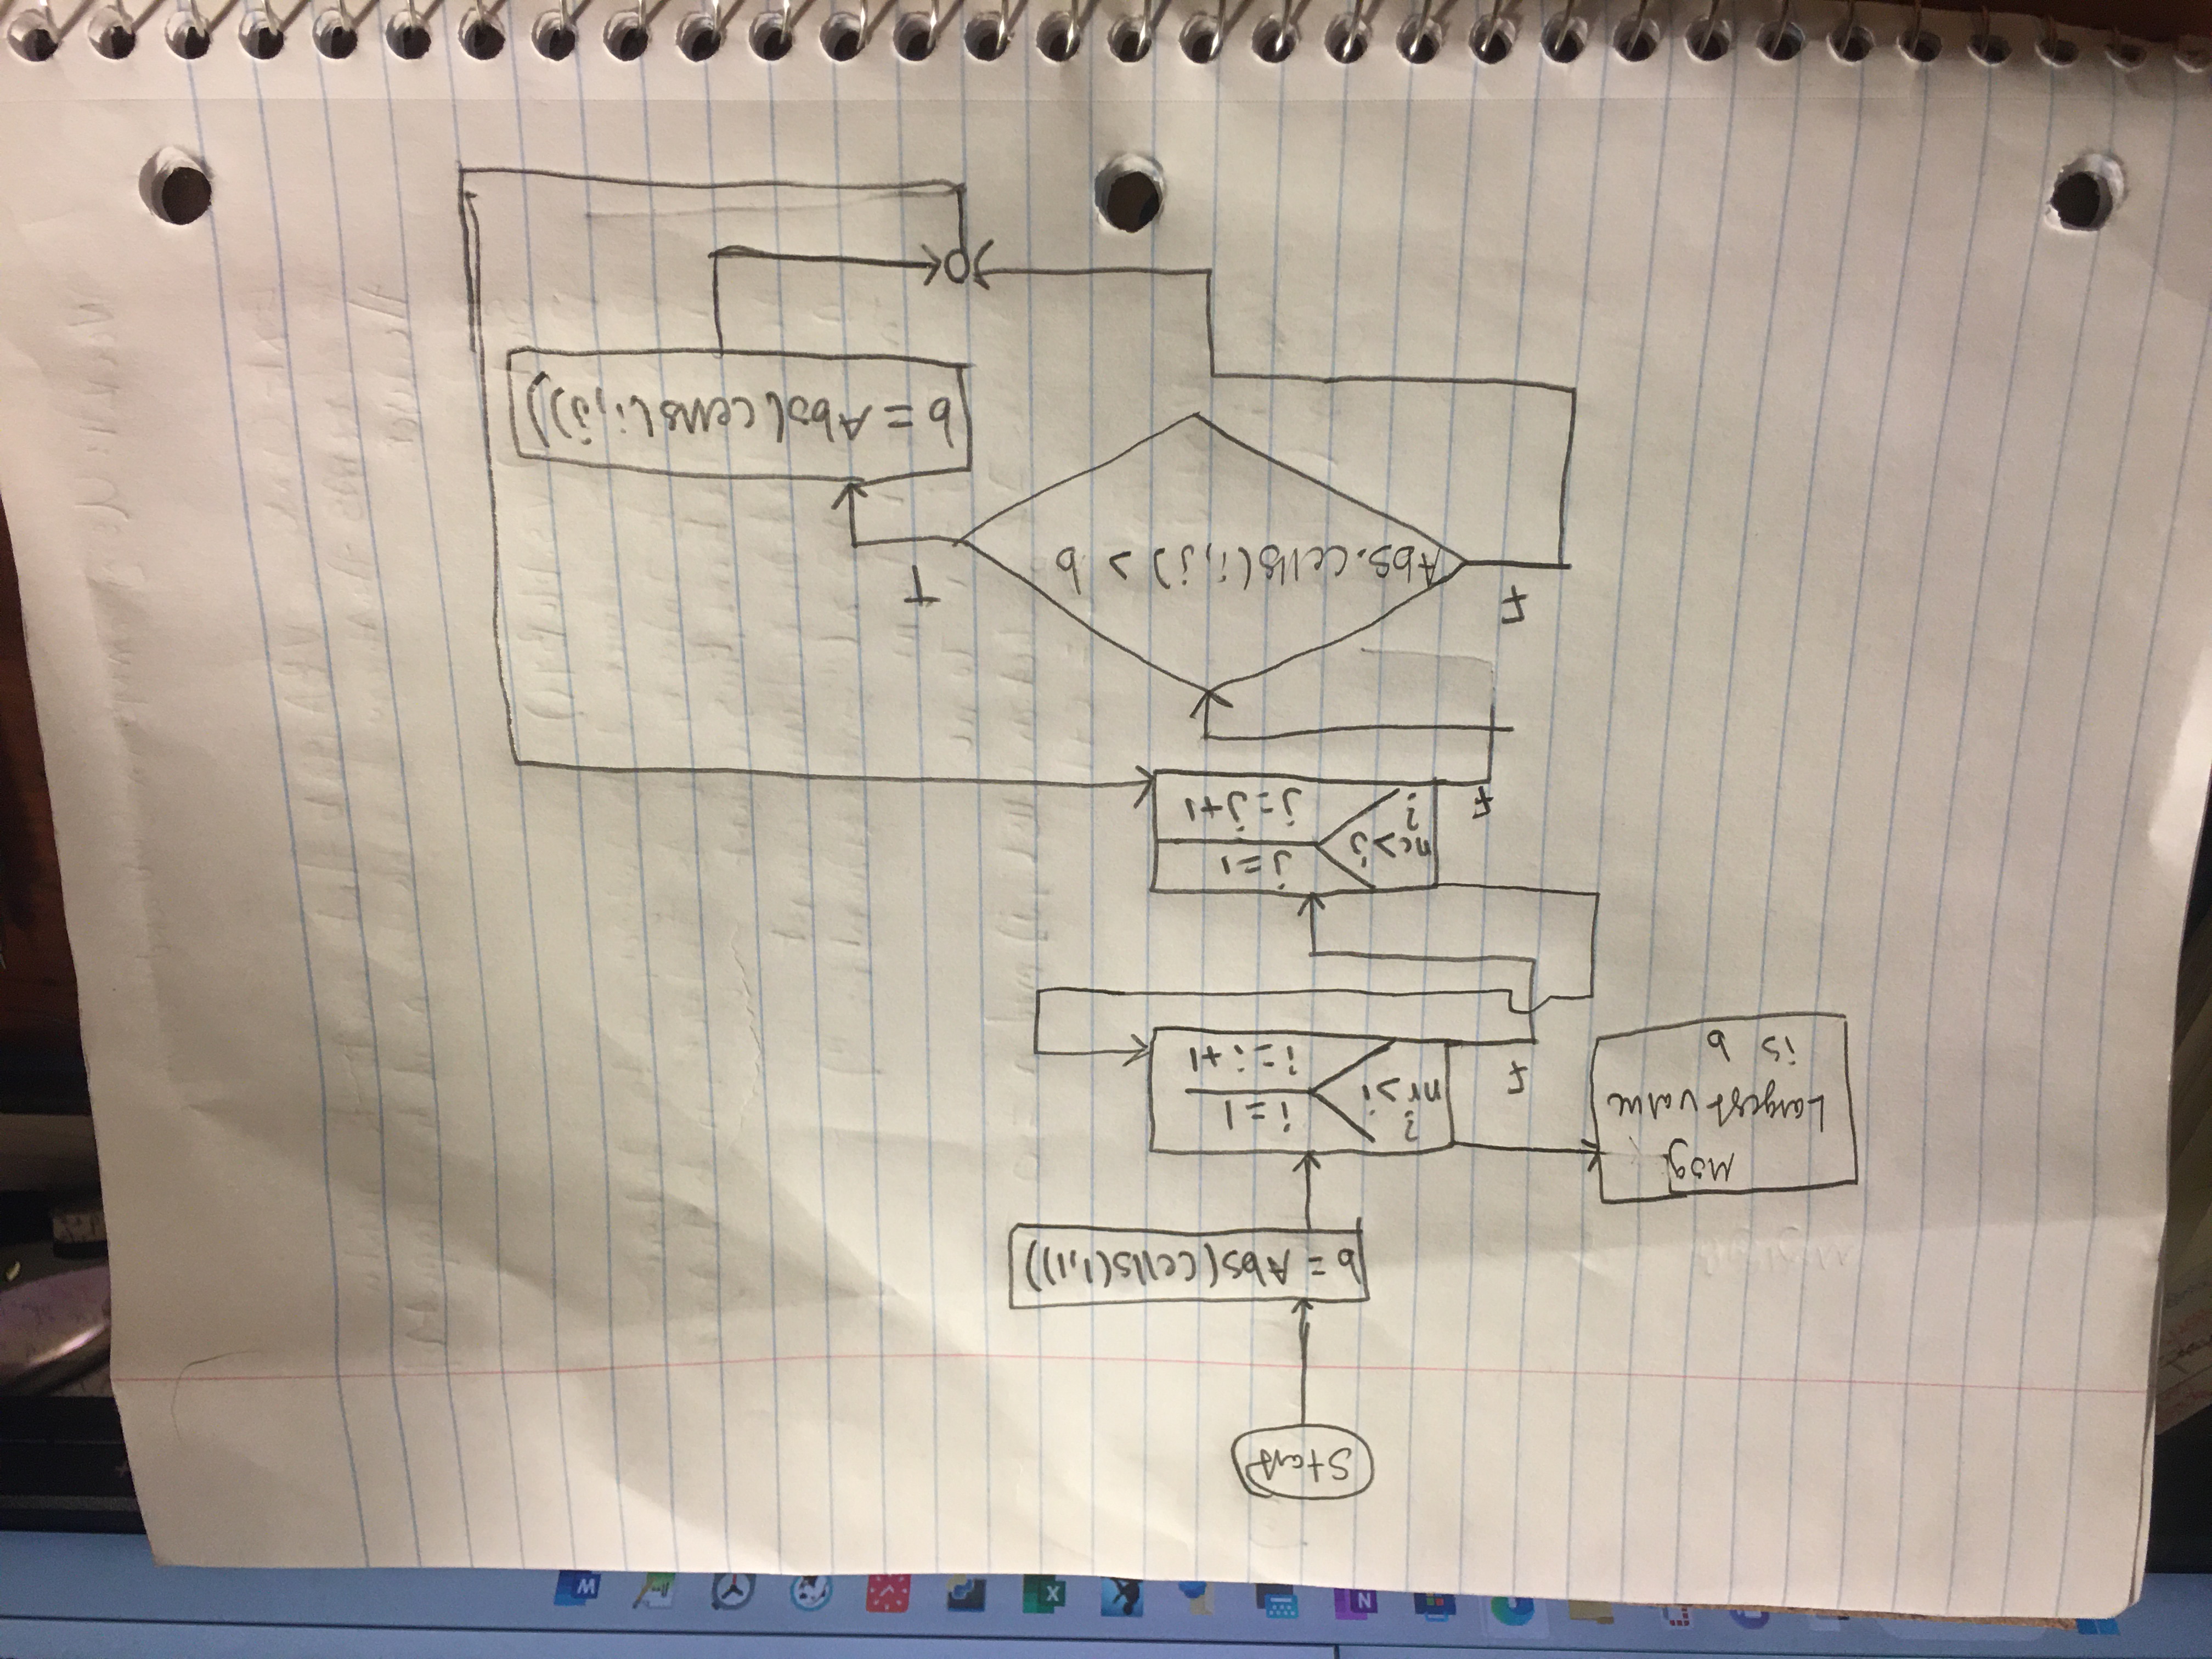 Start
b = Abs(cells(1,1))
Msg
Largest value
is b
?
nr > i
i = 1
i = i + 1
F
nc > j
?
j = 1
j = j + 1
F
Abs.cells(i,j) > b
F
T
b = Abs(cells(i,j))
N
X
W